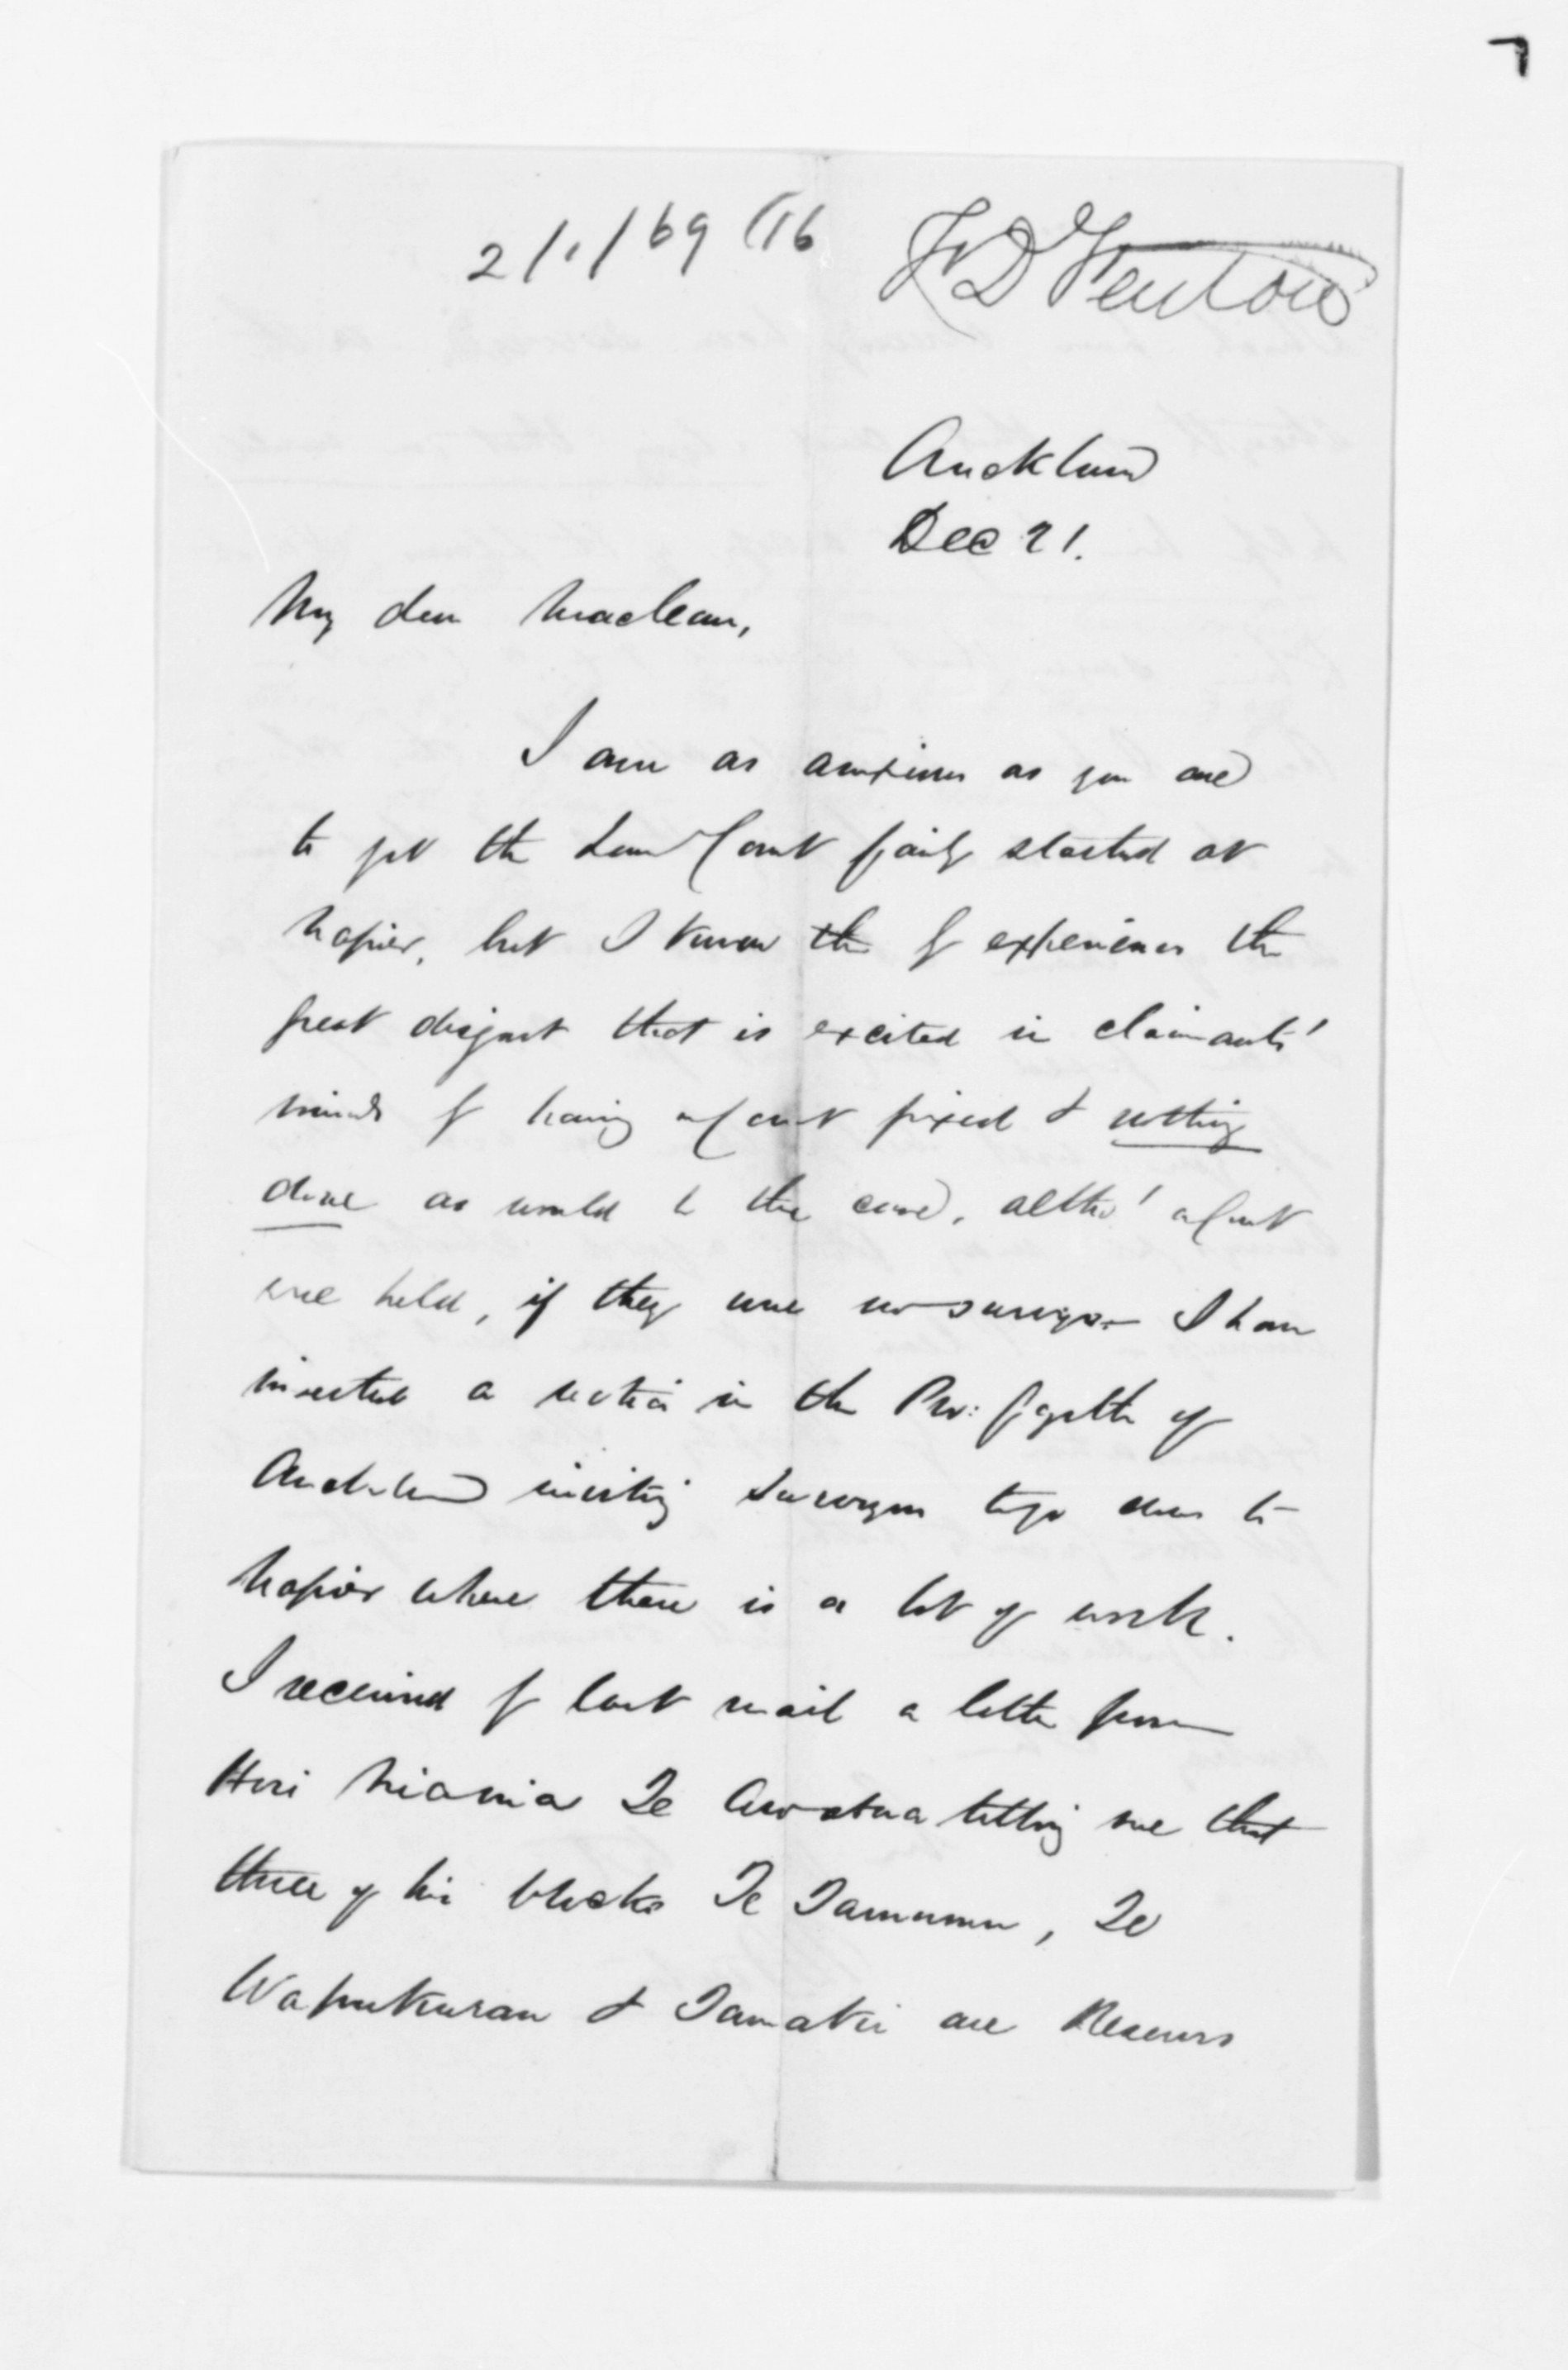 2/1/69
F D Fenton
Auckland
Dec 21.
My dear Maclean,
I am as anxious as you are
to get the Land Court fairly started at
Napier, but I know the by experience the
great disgust that is excited in claimants'
minds by having a Court fixed & nothing
done as would be the case, altho' a Court
were held, if they were no surveys. I have
inserted a notice in the Pro: Gazette of
Auckland inviting Surveyors to go down to
Napier where there is a lot of work.
I received by last mail a letter from
Hori Niania Te Aroatua telling me that
three of his blocks Te Tamumu, Te
Wapukurau & Tamaki are Reserves